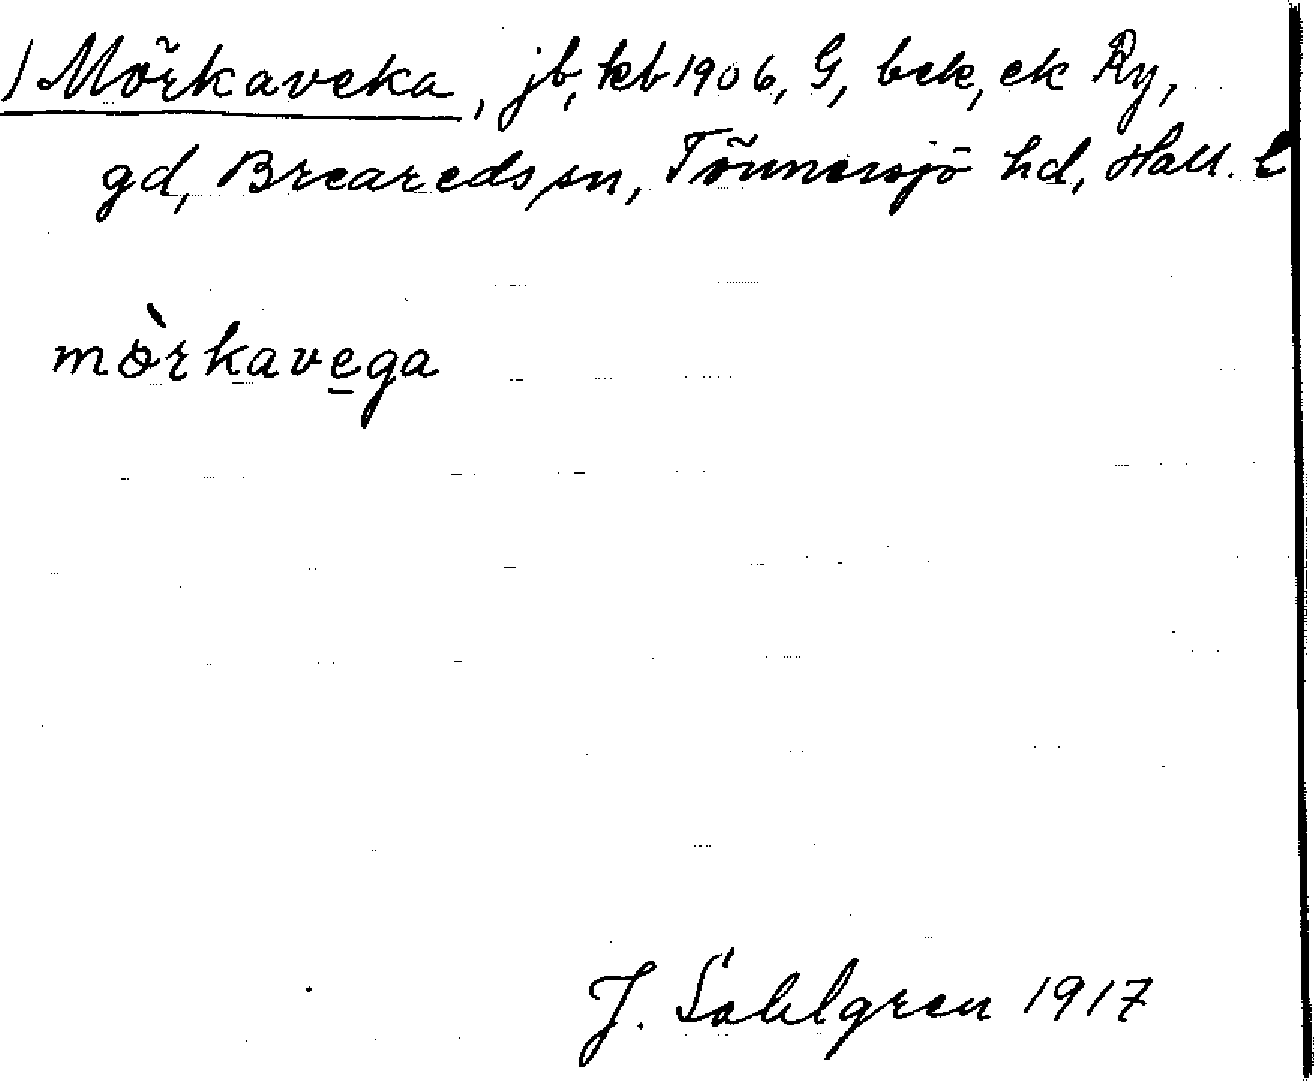 ) Mörkaveka, jb, kb 1906, G, bek, ek Ry,
gd, Breareds sn, Tönnersjö hd, Hall. l
mòrkavega
J. Sahlgren 1917